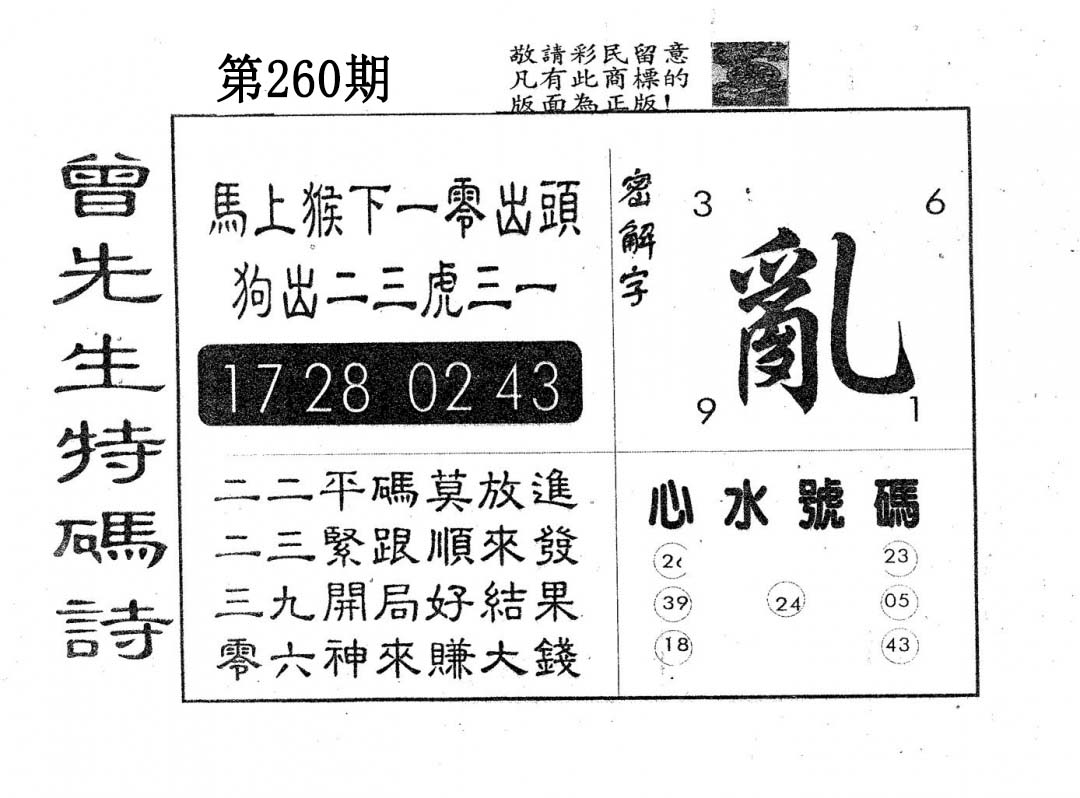 第260期
敬請彩民留意
凡有此商標的
版面為正版!
曾先生特碼詩
馬上猴下一零出頭
狗出二三虎三一
17 28 02 43
二二平碼莫放進
二三緊跟順來發
三九開局好結果
零六神來賺大錢
密解字
3 6
亂
9 1
心水號碼
26 23
39 24 05
18 43